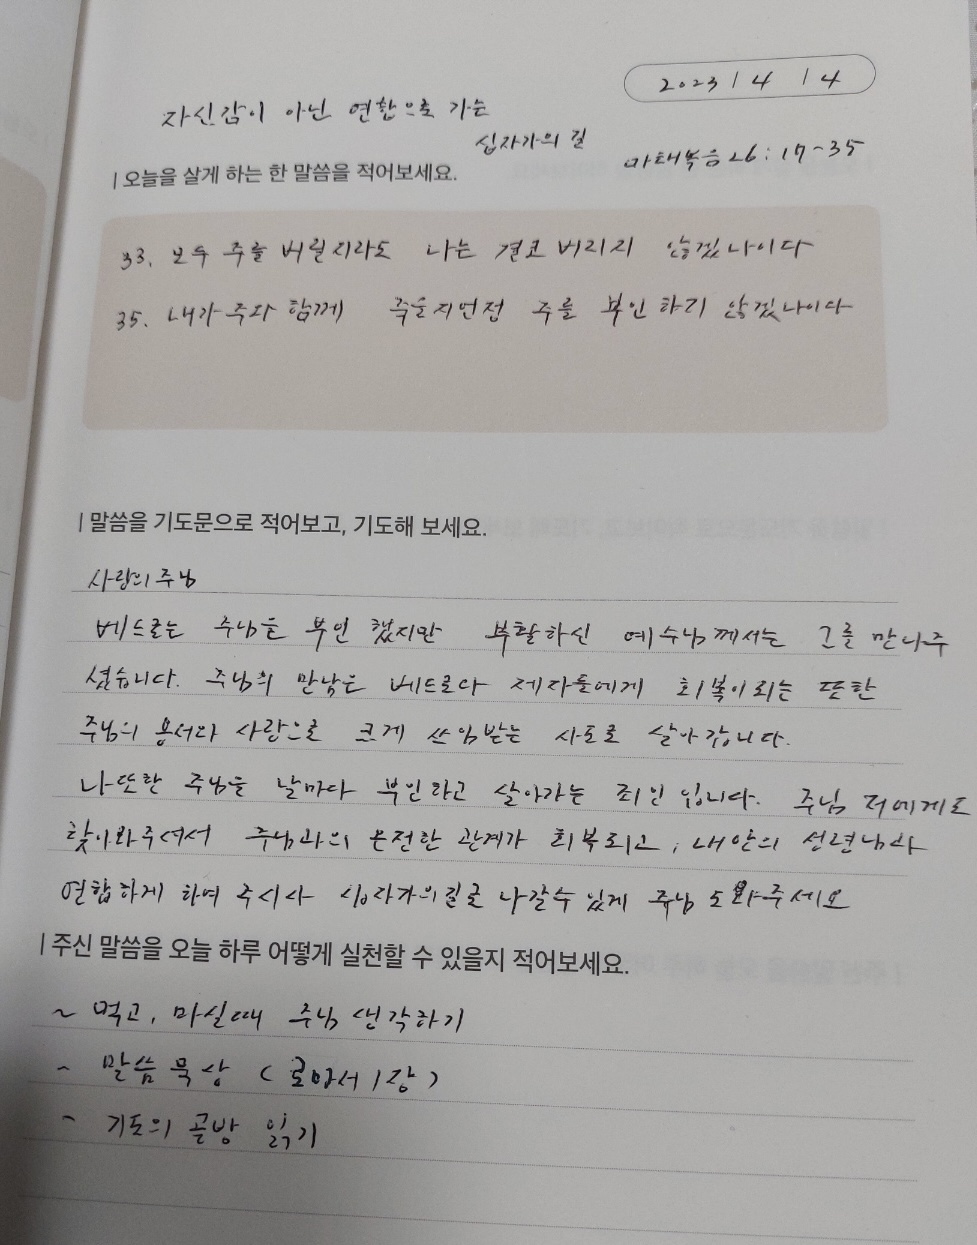 2023 / 4 / 4
자신감이 아닌 연합으로 가는
십자가의 길
마태복음 26:17~35
| 오늘을 살게 하는 한 말씀을 적어보세요.
33. 모두 주를 버릴지라도 나는 결코 버리지 않겠나이다
35. 내가 주와 함께 죽을지언정 주를 부인하지 않겠나이다
| 말씀을 기도문으로 적어보고, 기도해 보세요.
사랑의 주님
베드로는 주님을 부인 했지만 부활하신 예수님께서는 그를 만나주
셨습니다. 주님의 만남은 베드로와 제자들에게 회복이 되는 또한
주님의 용서와 사랑으로 크게 쓰임받는 사도로 살아갑니다.
나 또한 주님을 날마다 부인하고 살아가는 죄인 입니다. 주님 저에게도
찾아와주셔서 주님과의 온전한 관계가 회복되고, 내안의 성령님과
연합하게 하여 주시사 십자가의길로 나갈수 있게 주님 도와주세요
| 주신 말씀을 오늘 하루 어떻게 실천할 수 있을지 적어보세요.
~ 먹고, 마실때 주님 생각하기
~ 말씀 묵상 (로마서 1장)
~ 기도의 골방 읽기